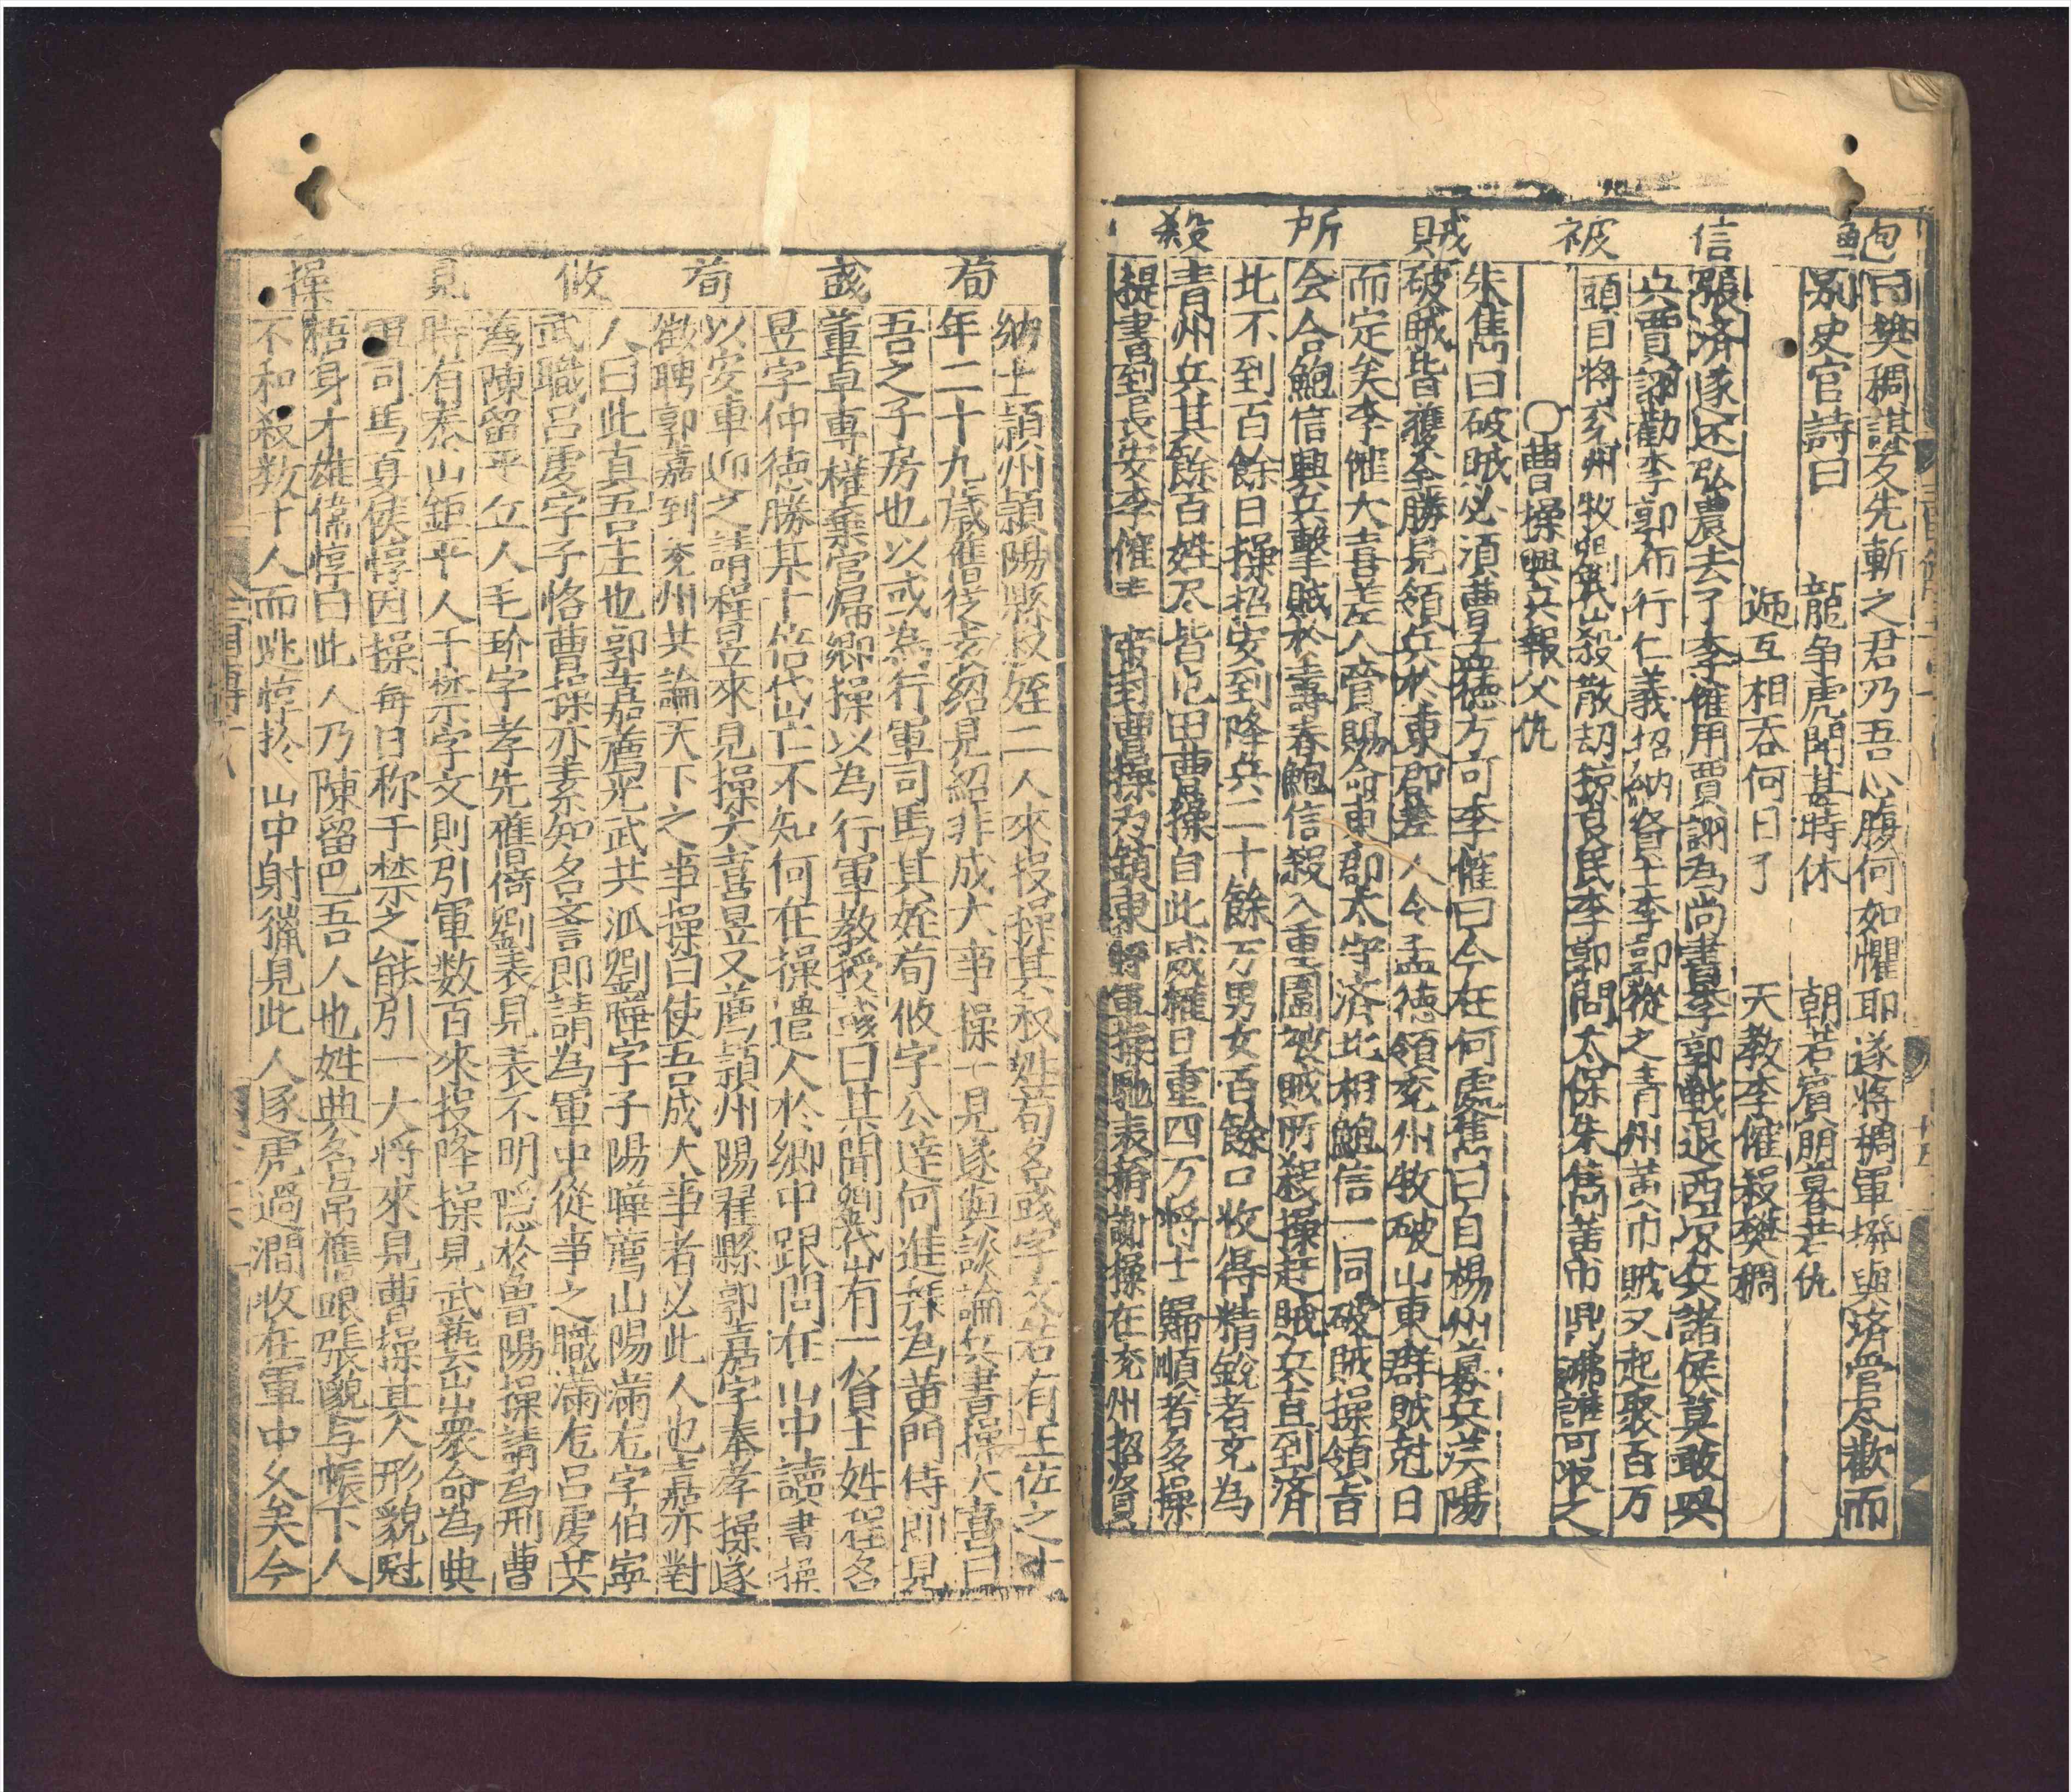 鮑信被賊所殺
同樊稠謀反先斬之君乃吾心腹何如懼耶遂將稠軍撥與済管尽歡而
別史官詩曰　龍争虎鬪甚時休　朝若賓朋暮若仇
遞互相吞何日了　天教李傕殺樊稠
張済遂还弘農去了李傕用賈詡為尚書李郭戦退西凉兵諸侯莫敢興
兵賈詡勸李郭布行仁義招納賢士李郭從之青州黄巾賊又起聚百万
頭目將兖州牧劉岱殺散刼掠良民李郭問太保朱雋黄巾鼎沸誰可収之
〇曹操興兵報父仇
朱雋曰破賊必須曹孟徳方可李傕曰今在何處雋曰自楊州募兵荥陽
破賊皆獲全勝見領兵於東郡差人令孟徳領兖州牧破山東群賊尅日
而定矣李傕大喜差人賫賜命東郡太守済北相鮑信一同破賊操領旨
会合鮑信興兵擊賊於壽春鮑信殺入重圍被賊所殺操赶賊兵直到済
北不到百餘日操招安到降兵二十餘万男女百餘口收得精銳者充為
青州兵其餘百姓尽皆归田曹操自此威權日重四万將士歸順者多操
捷書到長安李傕奏　帝封曹操為鎮東將軍操馳表稱謝操在兖州招賢
荀彧荀攸見操
納士頴州頴陽縣叔姪二人來投操其叔姓荀名彧字文若有王佐之才
年二十九歳舊從袁紹見紹非成大事操一見遂與談論兵書操大喜曰
吾之子房也以彧為行軍司馬其姪荀攸字公達何進拜為黄門侍郎見
董卓專權棄官归鄉操以為行軍教授彧曰某聞劉岱有一賢士姓程名
昱字仲徳勝某十倍岱亡不知何在操遣人於鄉中跟問在山中讀書操
以安車迎之請程昱來見操大喜昱又薦頴州陽翟縣郭嘉字奉孝操遂
徵聘郭嘉到兖州共論天下之事操曰使吾成大事者必此人也嘉亦對
人曰此真吾主也郭嘉薦光武共派劉曄字子陽曄薦山陽滿尤字伯寧
武職吕虔字子恪曹操亦素知名斉即請為軍中從事之職滿尤吕虔共
為陳留平丘人毛玠字孝先舊倚劉表見表不明隠於魯陽操請為刑曹
時有泰山鉅平人于禁字文則引軍数百來投降操見武藝出衆命為典
軍司馬夏侯惇因操每日称于禁之能引一大將來見曹操其人形貌魁
梧身才雄偉惇曰此人乃陳留巴吾人也姓典名韋舊跟張邈与帳下人
不和殺数十人而逃惇於山中射獵見此人逐虎過澗收在軍中久矣今